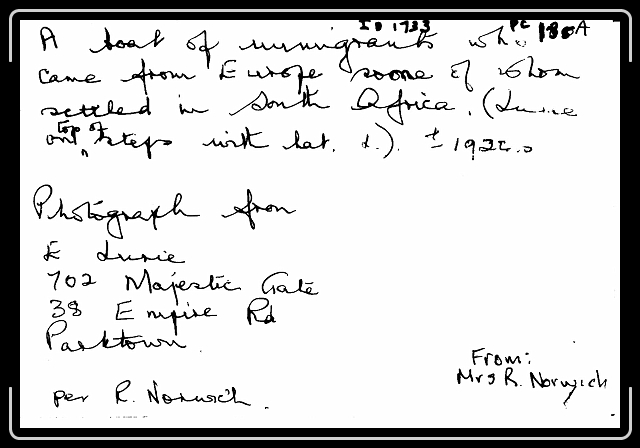 ID 1733 PC 180A
A boat of immigrants who
came from Europe some of whom
settled in South Africa. (Lurie
on top of steps with hat. L.). ± 192
Photograph from
E Lurie
702 Majestic Gate
38 Empire Rd
Parktown
per R. Norwich.
From:
Mrs R. Norwich